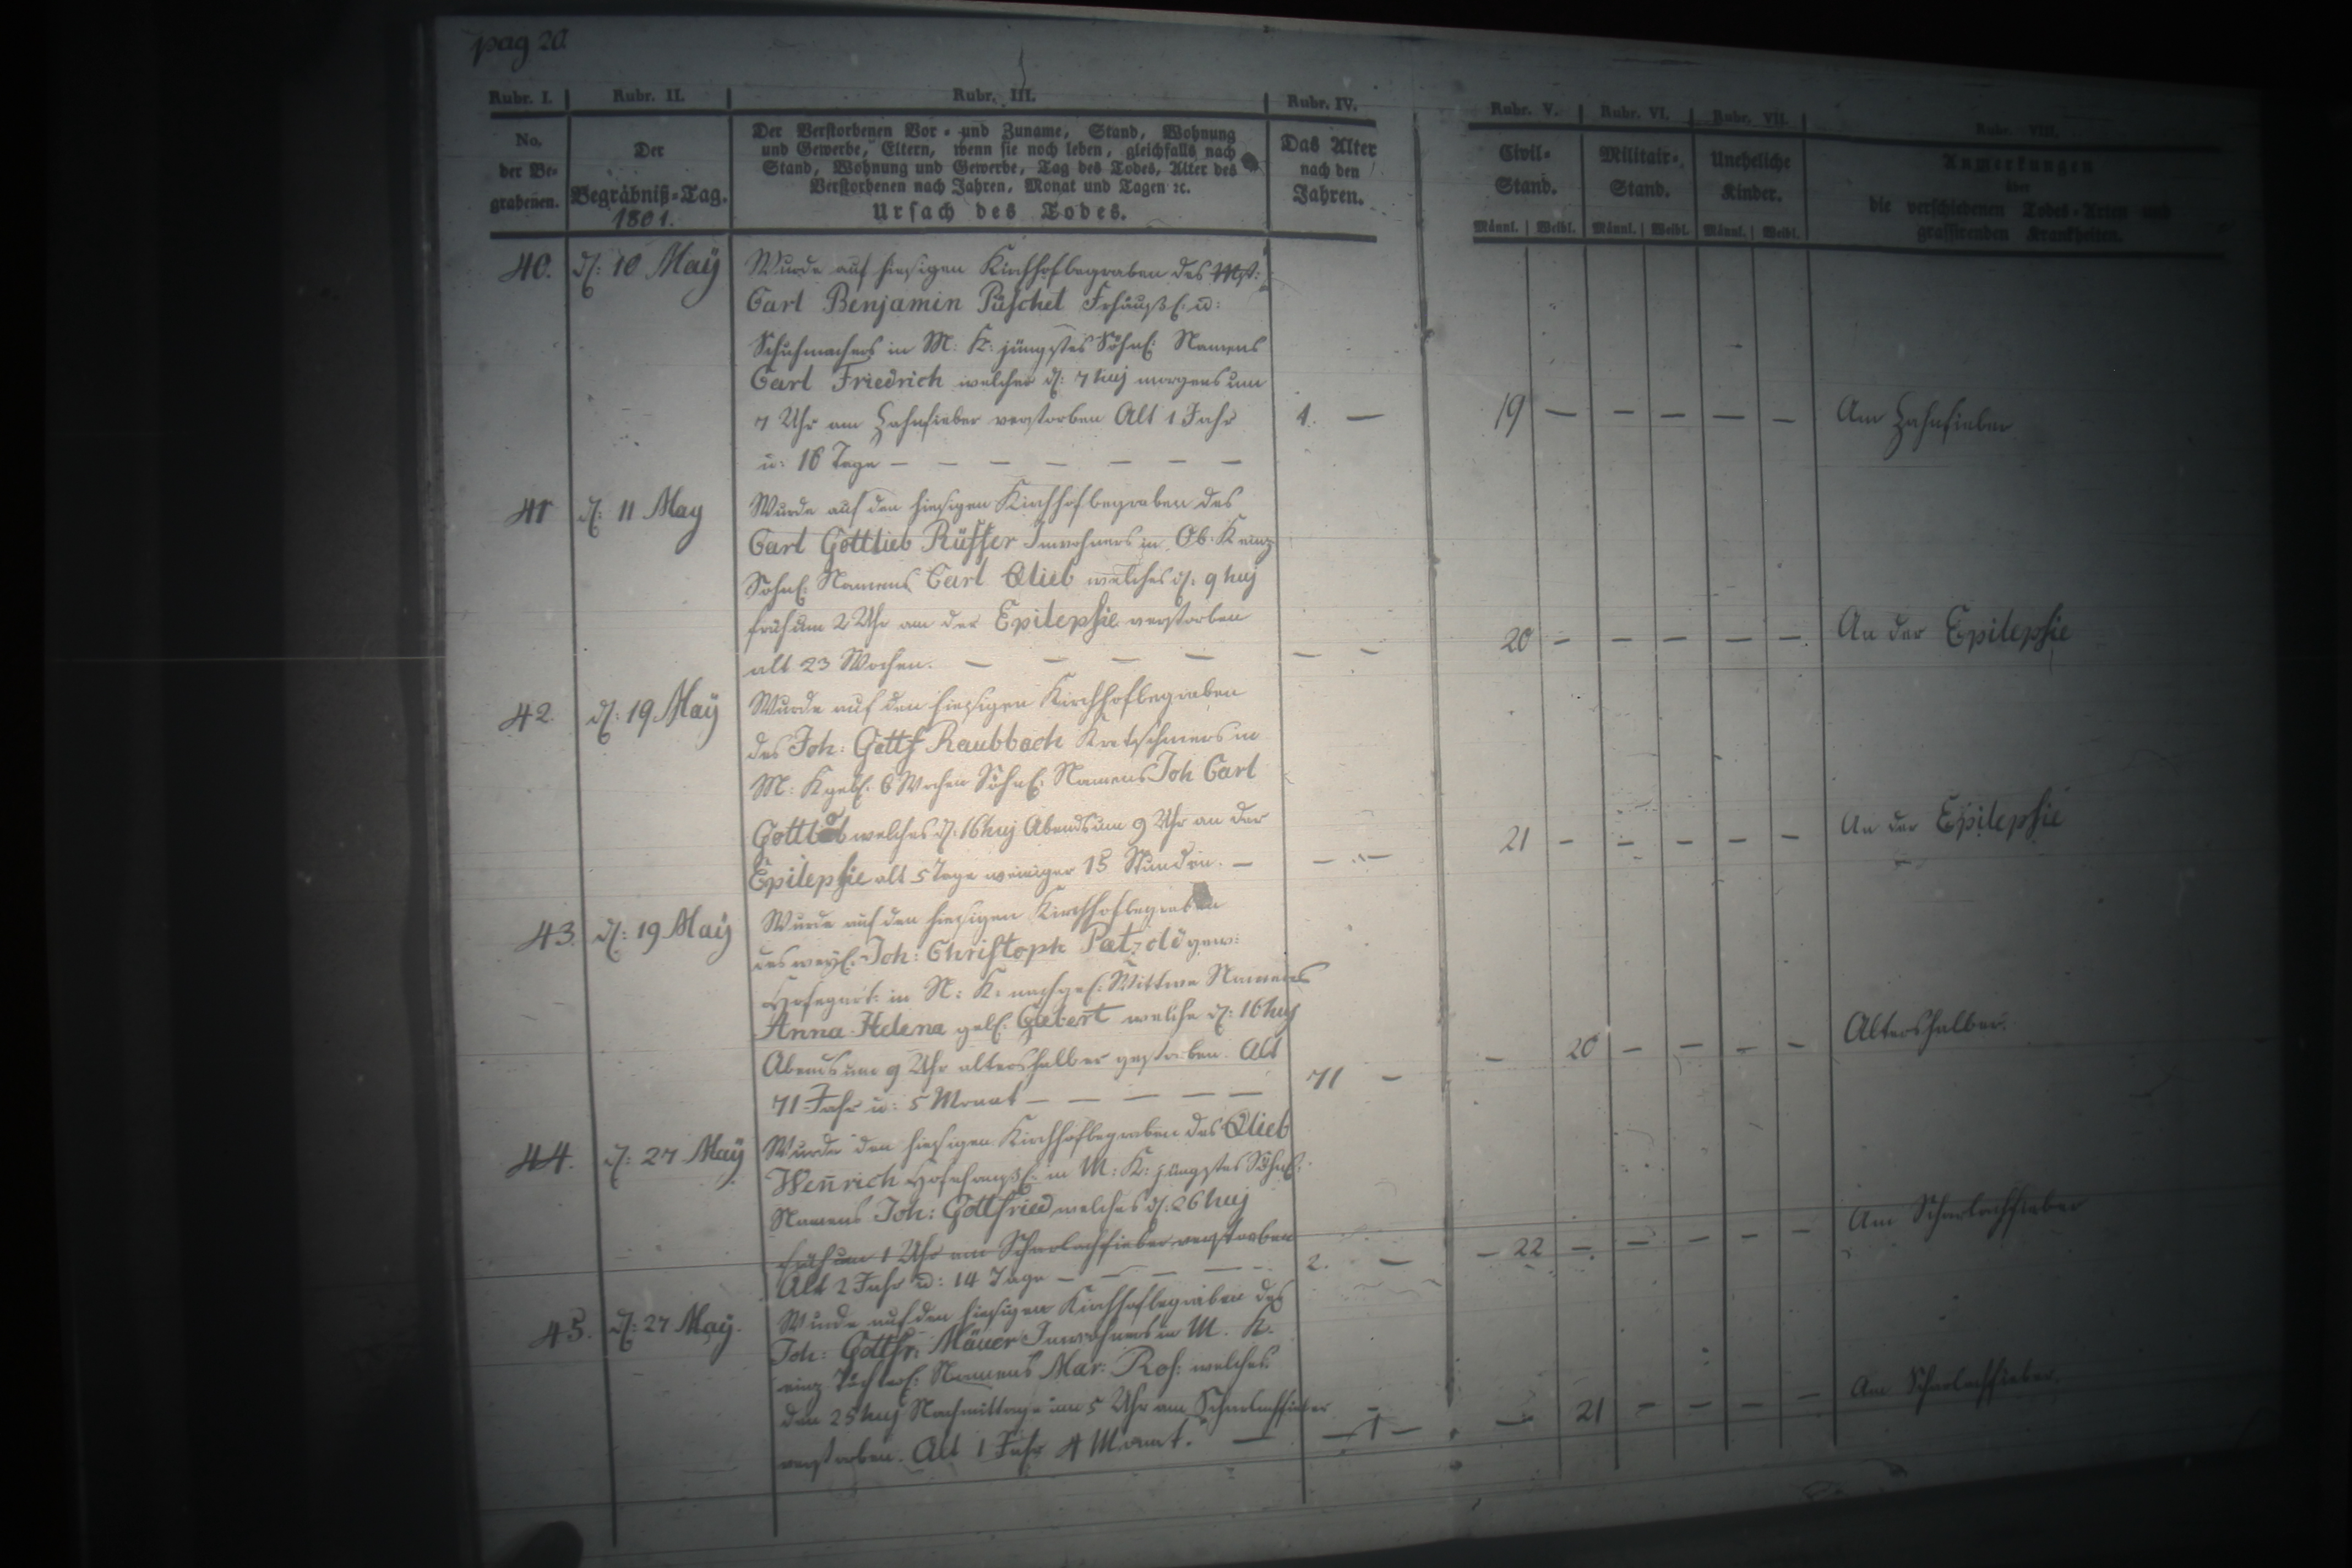 pag 20.
Rubr. I. Rubr. II. Rubr. III. Rubr. IV. Rubr. V. Rubr. VI. Rubr. VII. Rubr. VIII.
No. der Be- grabenen.
Der Begräbniß-Tag. 1801.
Der Verstorbenen Vor- und Zuname, Stand, Wohnung
und Gewerbe, Eltern, wenn sie noch leben, gleichfalls nach
Stand, Wohnung und Gewerbe, Tag des Todes, Alter des
Verstorbenen nach Jahren, Monat und Tagen ꝛc.
Ursach des Todes.
Das Alter nach den Jahren.
Civil- Stand.
Militair- Stand.
Uneheliche Kinder.
Anmerkungen
über
die verschiedenen Todes-Arten und
grassirenden Krankheiten.
Männl. Weibl. Männl. Weibl. Männl. Weibl.
40. d: 10 Maÿ Wurde auf hiesigen Kirchhof begraben des Mstr:
Carl Benjamin Püschel Frehäußl: u:
Schuhmachers in M: K: jüngstes Söhnl: Namens
Carl Friedrich welcher d: 7 huj morgens um
7 Uhr am Zahnfieber verstorben Alt 1 Jahr 1. — 19 — — — — — Am Zahnfieber
u: 16 Tage — — — — — — —
41 d: 11 May Wurde auf den hiesigen Kirchhof begraben des
Carl Gottlieb Rüffer Inwohners in Ob. K einz
Söhnl: Namens Carl Glieb welches d: 9 huj
früh um 2 Uhr an der Epilepsie verstorben 20 — — — — — An der Epilepsie
alt 23 Wochen. — — — — — —
42. d: 19 Maÿ Wurde auf den hiesigen Kirchhof begraben
des Joh: Gottf Raubbach Kretschmers in
M: K gebl. 6 Wochen Söhnl: Namens Joh Carl
Gottlob welches d: 16 huj Abends um 9 Uhr an der 21 — — — — — An der Epilepsie
Epilepsie alt 5 Tage weniger 15 Stunden. — — —
43. d: 19 Maÿ Wurde auf den hiesigen Kirchhof begraben
des weyl. Joh: Christoph gew:
Hofegärt: in N: K: nachgel: Wittwe Namens
Anna Helena geb: Gebert welche d: 16 huj
Abends um 9 Uhr altershalber gestorben. Alt — 20 — — — — Altershalber.
71 Jahr u: 5 Monat — — — — — 71 —
44. d: 27 Maÿ Wurde den hiesigen Kirchhof begraben des Glieb
Heinrich in M: K: jüngstes Söhnl:
Namens Joh: Gottfried welches d: 26 huj
früh um 1 Uhr am Scharlachfieber verstorben — 22 — — — — — Am Scharlachfieber
Alt 2 Jahr u: 14 Tage — — — — 2. —
45. d: 27 Maÿ. Wurde auf den hiesigen Kirchhof begraben des
Joh: Gottfr: Mäuer Inwohners in M. K.
einz Töchterl: Namens Mar: Ros: welches
den 25 huj Nachmittage um 5 Uhr am Scharlachfieber — 21 — — — — Am Scharlachfieber.
verstorben. Alt 1 Jahr 4 Monat. — — 1 —